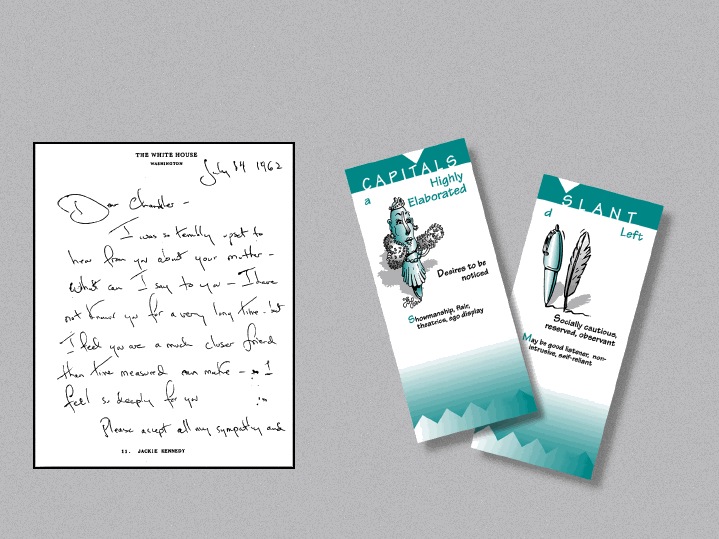 THE WHITE HOUSE
WASHINGTON
July 14 1962
Dear Chandler -
I was so terribly upset to
hear from you about your mother -
What can I say to you - I have
not known you for a very long time - but
I feel you are a much closer friend
than time measured can make - I
feel so deeply for you
Please accept all my sympathy and
11. JACKIE KENNEDY
CAPITALS
a
Highly
Elaborated
Desires to be
noticed
Showmanship, flair,
theatrics, ego display
SLANT
d
Left
Socially cautious,
reserved, observant
May be good listener, non-
intrusive, self-reliant